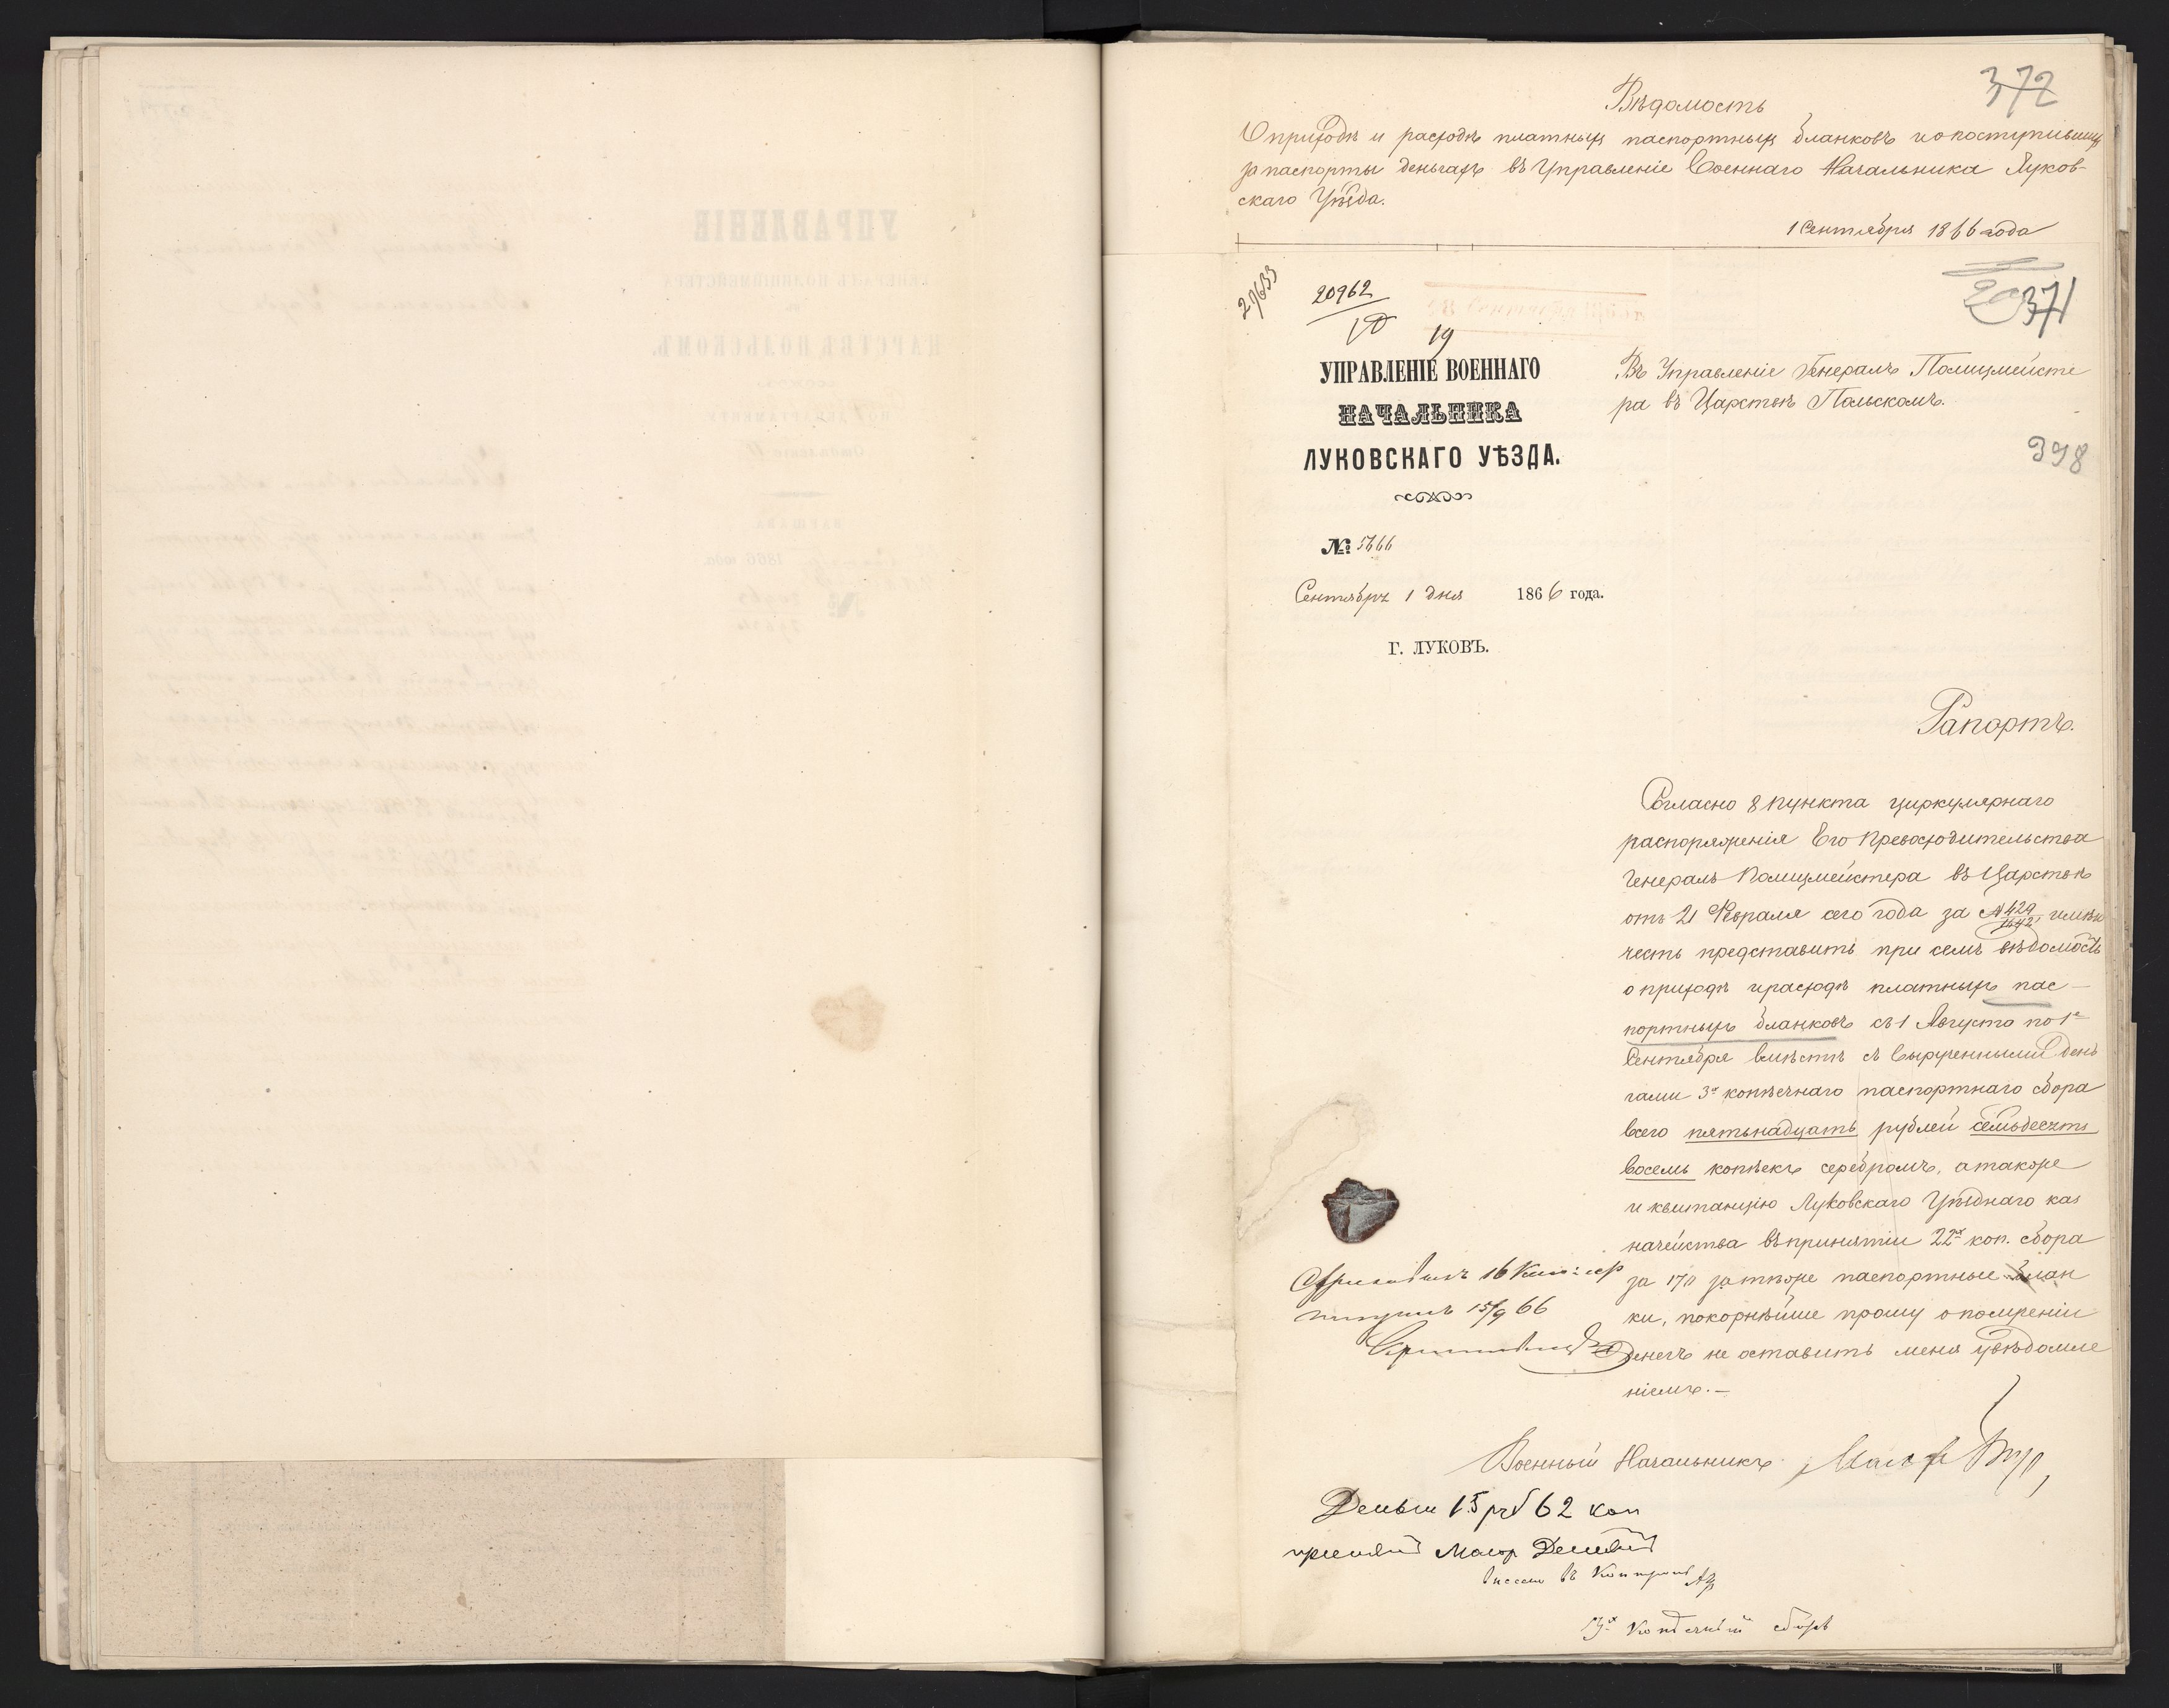 372
Вѣдомость
О приходѣ и расходѣ платныхъ паспортныхъ бланковъ и о поступившихъ
за паспорты деньгахъ въ Управленіе Военнаго Начальника Луков-
скаго Уѣзда.
1 Сентября 1866 года
29633
20962
19
371
УПРАВЛЕНІЕ ВОЕННАГО
НАЧАЛЬНИКА
ЛУКОВСКАГО УѢЗДА.
№ 5666
Сентября 1 дня 1866 года.
Г. ЛУКОВЪ.
Въ Управленіе Генералъ Полицмейсте
ра въ Царствѣ Польскомъ.
398
Рапортъ.
Согласно 8 пункта циркулярнаго
распоряженія Его Превосходительства
Генералъ Полицмейстера въ Царствѣ
отъ 21 Февраля сего года за № 429/1642 имѣю
честь представить при семъ вѣдомость
о приходѣ и расходѣ платныхъ пас-
портныхъ бланковъ съ 1 Августа по 1е
Сентября вмѣстѣ съ вырученными день
гами 3х копѣечнаго паспортнаго сбора
всего пятьнадцать рублей семьдесятъ
восемь копѣекъ серебромъ, а также
и квитанцію Луковскаго Уѣзднаго каз
начейства въ принятіи 22х коп. сбора
за 170 за тѣже паспортные блан
ки, покорнѣйше прошу о полученіи
денегъ не оставить меня увѣдомле
ніемъ.—
Военный Начальникъ, Маіоръ
16
15/9 66
Деньги 15 руб 62 коп
принялъ Маіор
внесено въ Контроль
3х Копѣечный сборъ